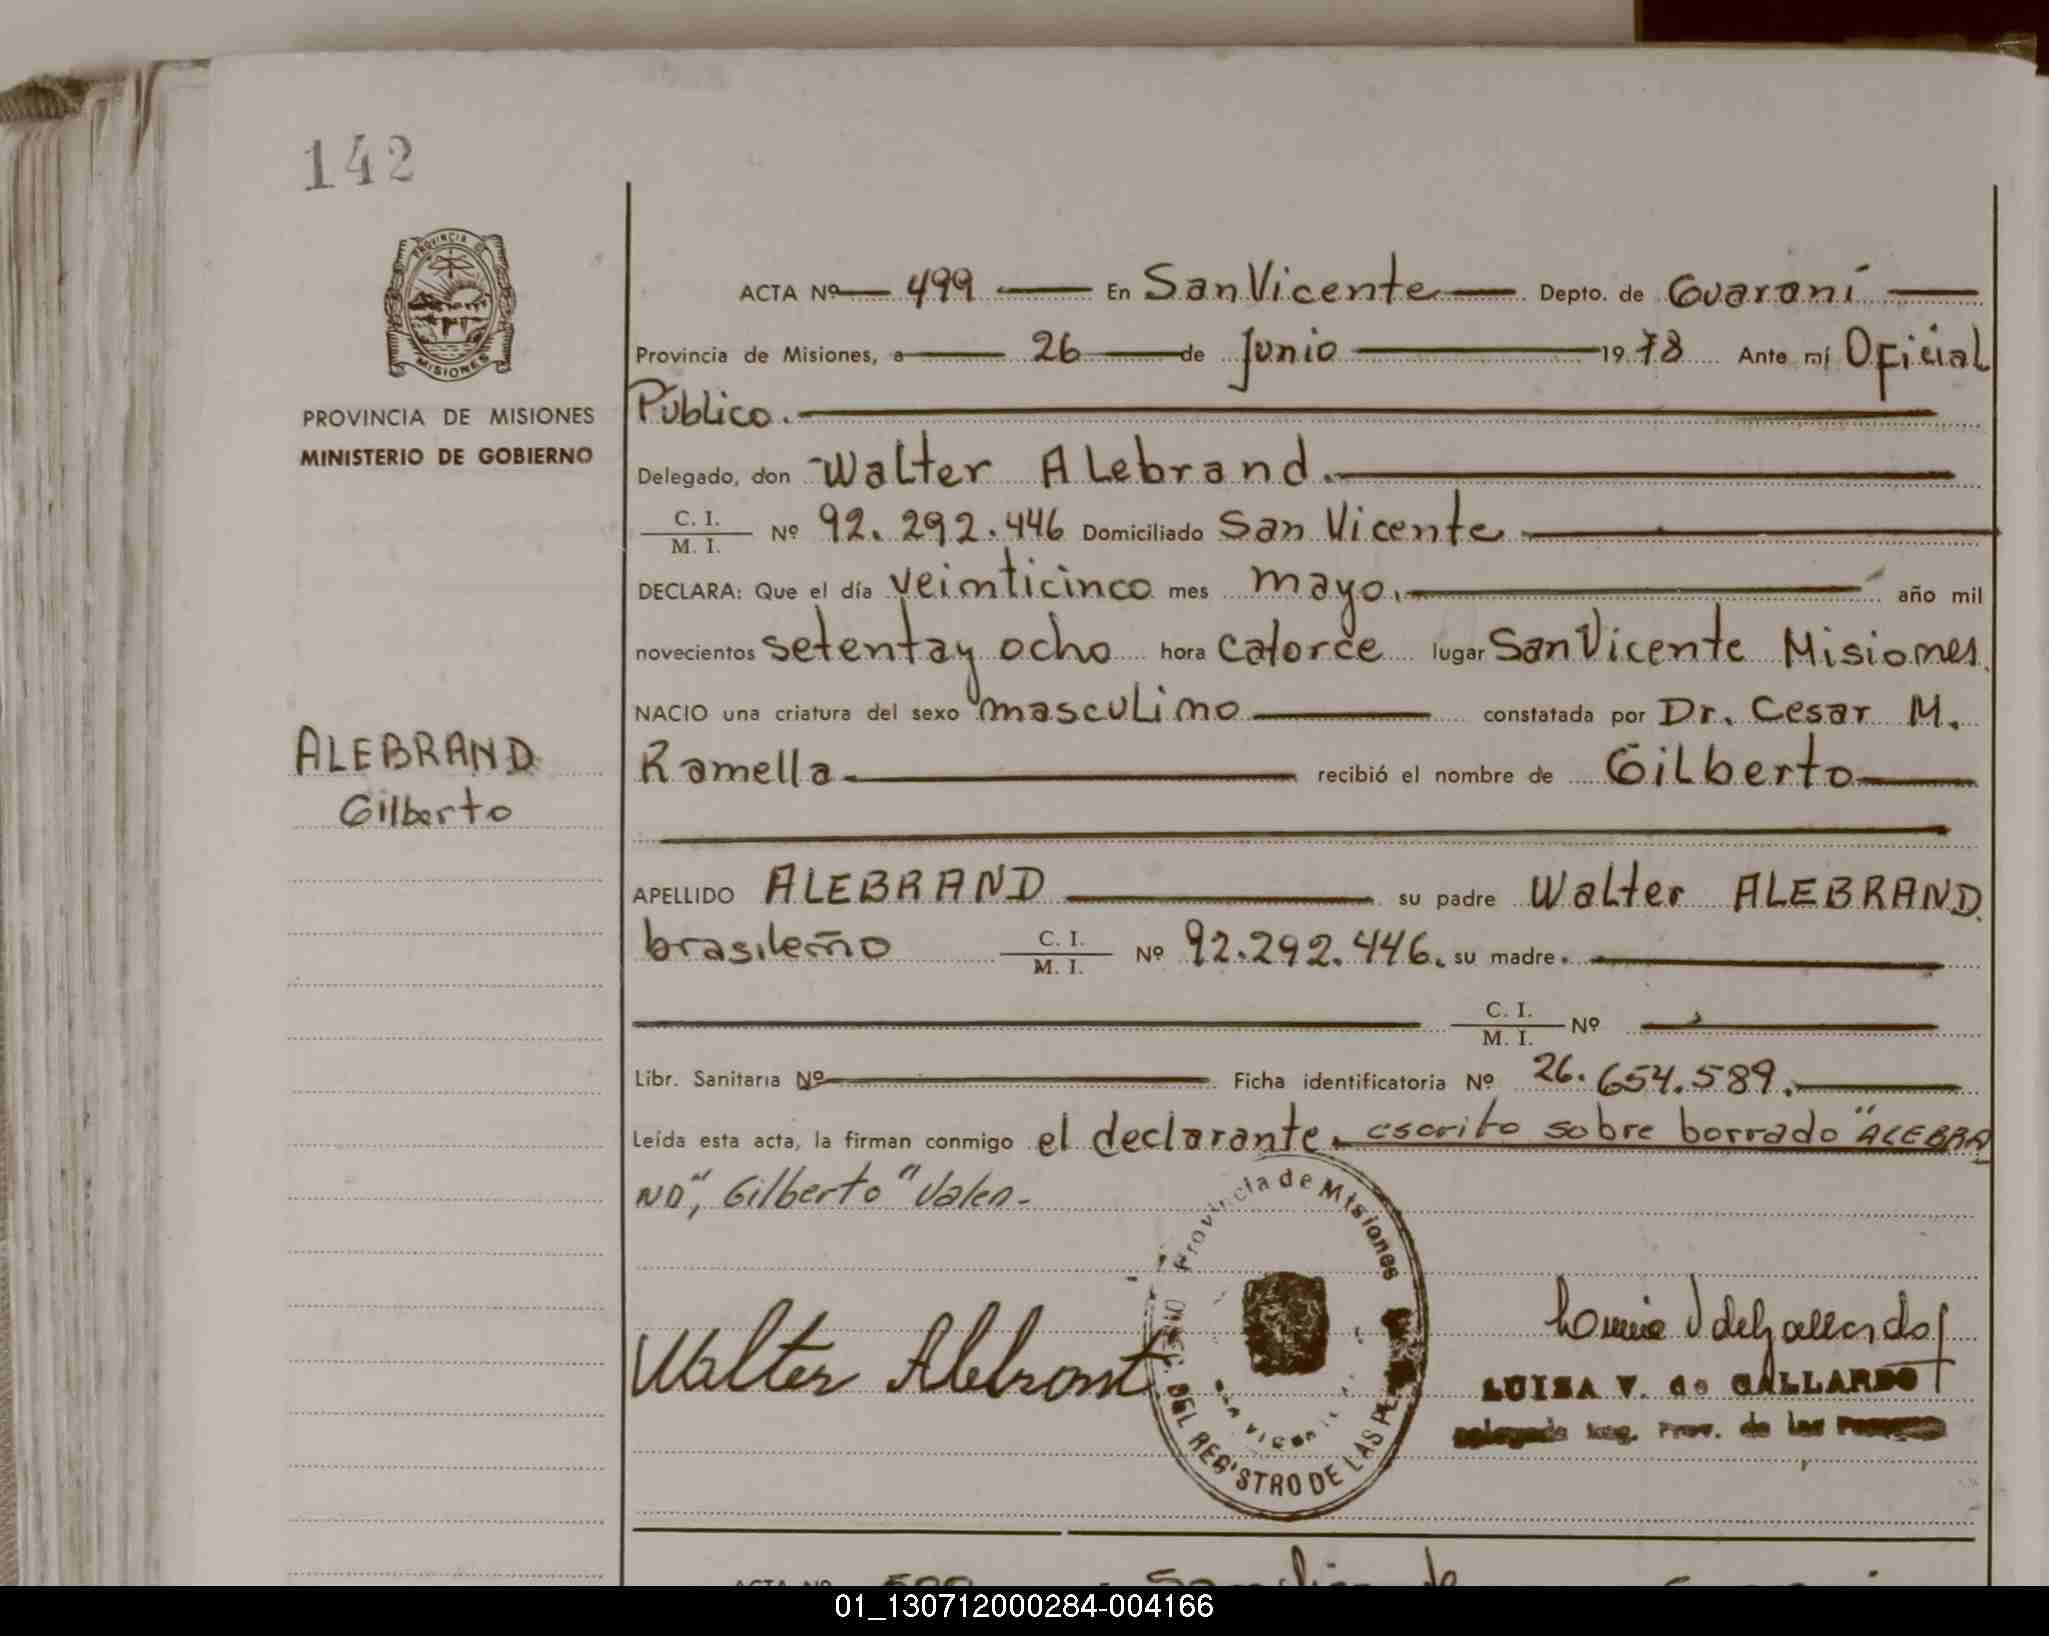 142
PROVINCIA DE
MISIONES
PROVINCIA DE MISIONES
MINISTERIO DE GOBIERNO
ACTA Nº 499 En San Vicente Depto. de Guaraní
Provincia de Misiones, a 26 de Junio 1978 Ante mí Oficial
Público.
Delegado, don Walter ALebrand.
C. I.
M. I. Nº 92.292.446 Domiciliado San Vicente
DECLARA: Que el día veinticinco mes mayo. año mil
novecientos setenta y ocho hora catorce lugar San Vicente Misiones.
NACIO una criatura del sexo masculino constatada por Dr. Cesar M.
Ramella recibió el nombre de Gilberto
ALEBRAND
Gilberto
APELLIDO ALEBRAND su padre Walter ALEBRAND.
brasileño C. I.
M. I. Nº 92.292.446. su madre.
C. I.
M. I. Nº
Libr. Sanitaria Nº Ficha identificatoria Nº 26.654.589.
Leída esta acta, la firman conmigo el declarante. escrito sobre borrado "ALEBRA
ND", Gilberto" Valen-
Provincia de Misiones
DEL REGISTRO DE LAS PE
Walter Alebrant
LUISA V. de GALLARDO
Delegada Reg. Prov. de las
ACTA Nº 500
01_130712000284-004166